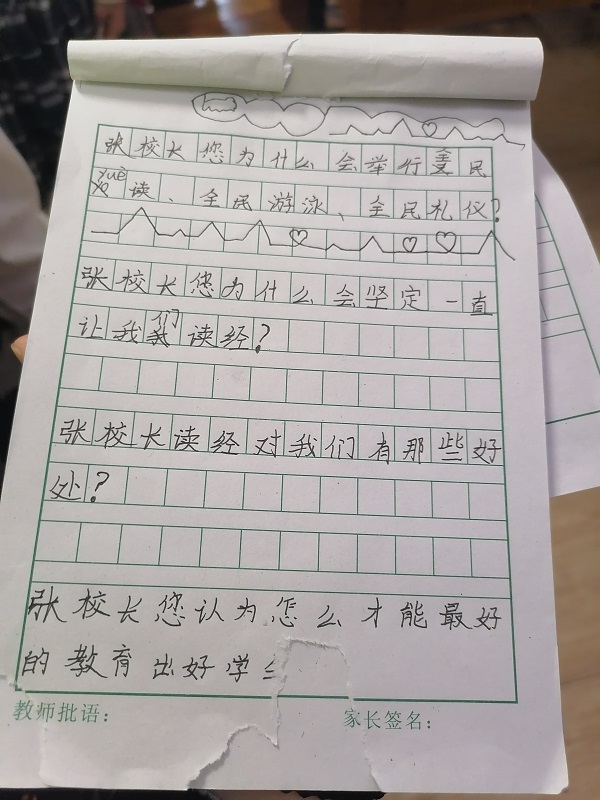 张校长您为什么会举行全民
yuè读、全民游泳、全民礼仪?
张校长您为什么会坚定一直
让我们读经?
张校长读经对我们有那些好
处?
张校长您认为怎么才能最好
的教育出好学
教师批语:
家长签名: